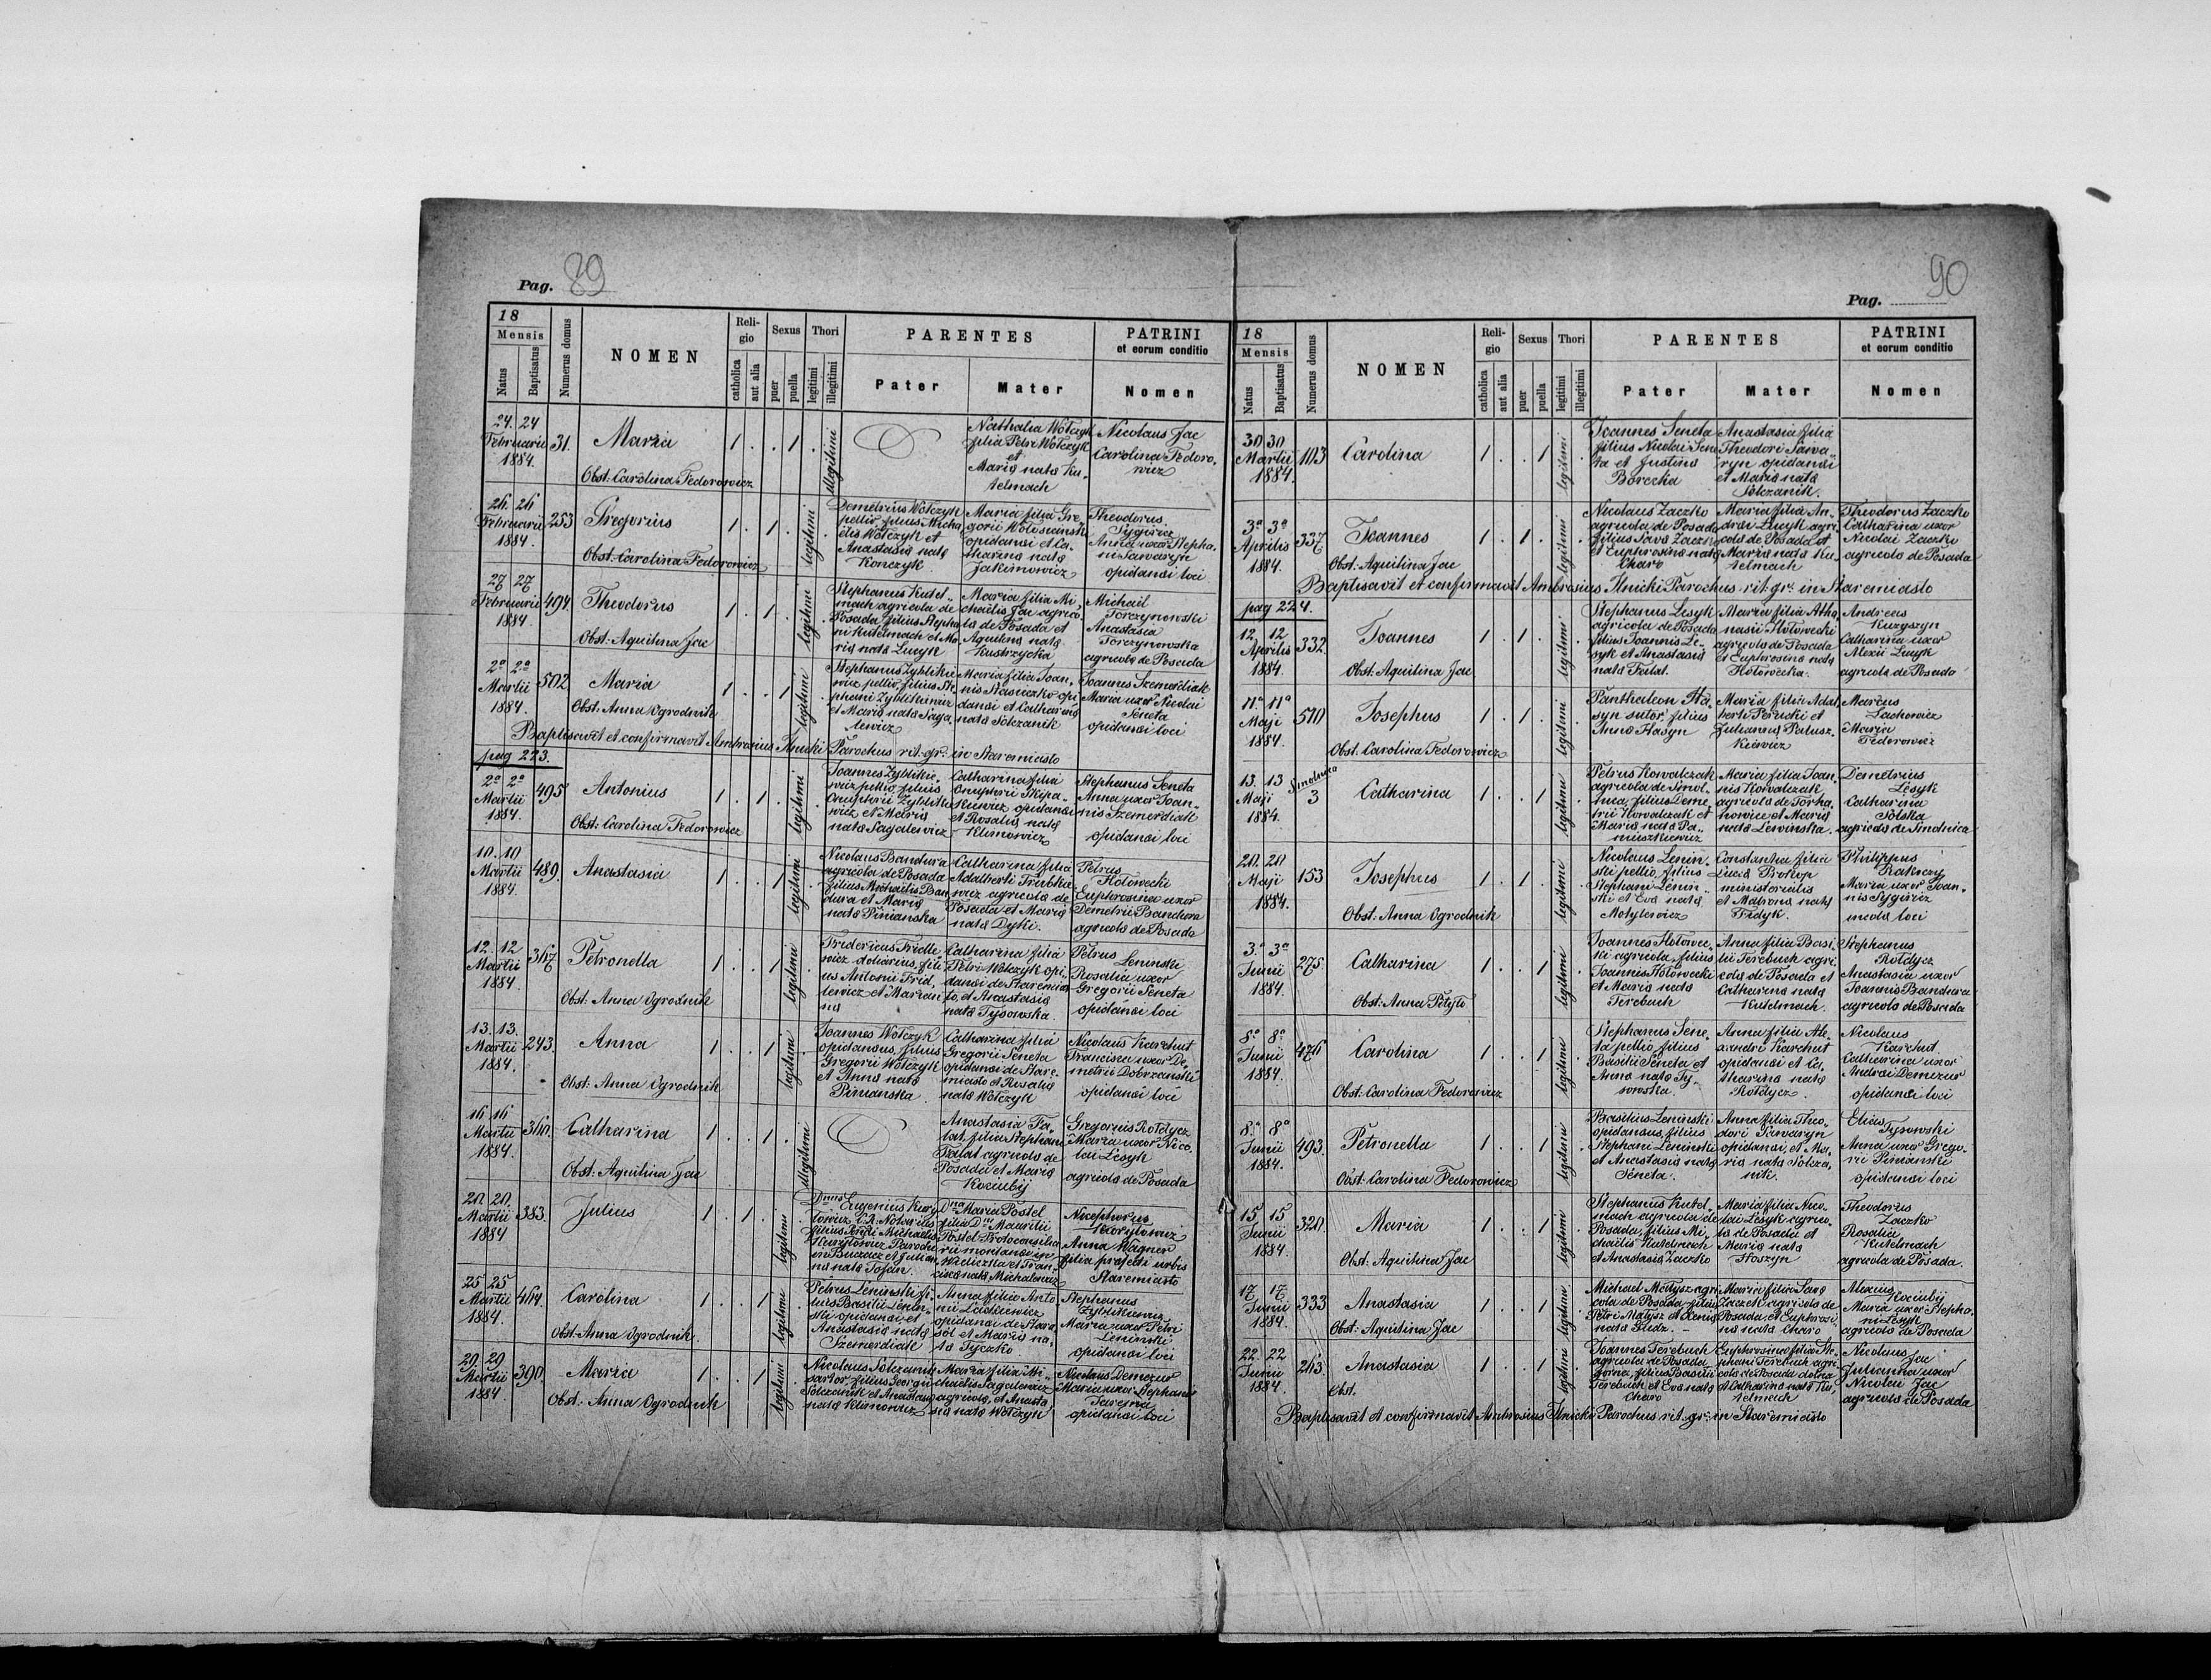 Pag. 89
18
Mensis
Natus
Baptisatus
Numerus domus
NOMEN
Religio
catholica
aut alia
Sexus
puer
puella
Thori
legitimi
illegitimi
PARENTES
Pater
Mater
PATRINI
et eorum conditio
Nomen
24. 24
Februarii
1884.
31.
Maria
1 . . 1 .
illegitimi
Obst: Carolina Fedorowicz
Nathalia Wołczyk
filia Petri Wołczyk
et
Maria nata Ku-
telmach
Nicolaus Jac
Carolina Fedoro-
wicz
26. 26
Februarii
1884.
253
Gregorius
1 . 1 . legitimi .
Obst: Carolina Fedorowicz
Demetrius Wołczyk
pellio, filius Micha
elis Wołczyk et
Anastasia nata
Konczyk
Maria filia Gre-
gorii Wołosianski
opidanei et Ca-
tharina nata
Jakimowicz
Theodorus
Sygiricz
Anna uxor Stepha-
ni Sawaryn
opidanei loci
27 27
Februarii
1884
494.
Theodorus
1 . 1 . legitimi .
Obst: Aquilina Jac
Stephanus Kutel-
mach agricola de
Posada filius Stepha
ni Kutelmach et Ma-
ria nata Lucyk
Maria filia Mi-
chaelis Jac agrico-
la de Posada et
Aquilina nata
Kustrzycka
Michail
Torczynowski
Anastasia
Torczynowska
agricola de Posada
2a 2a
Martii
1884.
502
Maria
1 . . 1 legitimi .
Obst: Anna Ogrodnik
Stephanus Zyblikie
wicz pellio, filius Ste
phani Zyblikiewicz
et Maria nata Saga
lewicz
Maria filia Joan-
nis Stasiczko opi-
danei et Catharina
nata Solczanik
Joannes Szemerdiak
Maria uxor Nicolai
Seneta
opidanei loci
Baptisavit et confirmavit Ambrosius Ilnicki Parochus rit. gr. in Staremiasto
pag 223.
2a 2a
Martii
1884.
495
Antonius
1 . 1 . legitimi .
Obst: Carolina Fedorowicz
Joannes Zyblikie-
wicz pellio, filius
Onuphrii Zyblikie
wicz et Maria
nata Sagalewicz
Catharina filia
Onuphrii Skipa-
kiewicz opidanei
et Rosalia nata
Klimowicz
Stephanus Seneta
Anna uxor Joan-
nis Szemerdiak
opidanei loci
10. 10
Martii
1884.
489.
Anastasia
1 . . 1 legitimi .
Nicolaus Bandura
agricola de Posada
filius Michaelis Ban
dura et Maria
nata Pinianska
Catharina filia
Adalberti Trubkie
wicz agricola de
Posada et Maria
nata Dyki.
Petrus
Hołowecki
Euphrosina uxor
Demetrii Bandura
agricola de Posada
12. 12
Martii
1884.
367
Petronella
1 . . 1 legitimi .
Obst: Anna Ogrodnik
Fridericus Fridle
wicz doliarius, fili
us Antonii Frid-
lewicz et Marian
na
Catharina filia
Petri Wołczyk opi-
danei de Staremias
to, et Anastasia
nata Tysowska.
Petrus
Leninski
Rosalia uxor
Gregorii Seneta
opidanei loci
13. 13.
Martii
1884.
243.
Anna
1 . . 1 legitimi .
Obst: Anna Ogrodnik
Joannes Wołczyk
opidaneus, filius
Gregorii Wołczyk
et Anna nata
Pinianska
Catharina filia
Gregorii Seneta
opidanei de Stare-
miasto et Rosalia
nata Wołczyk
Nicolaus Karchut
Francisca uxor De-
metrii Dobrzanski
opidanei loci
16 16
Martii
1884.
360.
Catharina
1 . . 1 . illegitimi
Obst: Aquilina Jac
Anastasia Fa-
lat, filia Stephani
Falat agricola de
Posada et Maria
Koziubij
Gregorius Rołdycz
Maria uxor Nico-
lai Lesyk
agricola de Posada
20. 20.
Martii
1884
383.
Julius
1 . 1 . legitimi .
Dnus Eugenius Kury
łowicz C. R. Notarius
filius Michaelis
Kuryłowicz Parochi
in Buczacz et Julian
na nata Tofan.
Dna Maria Postel
filia Dni Maurilii
Postel Protoconsilia
rii montanei in
Wieliczka et Fran-
cisca nata Michalewicz
Nicephorus
Kuryłowicz
Anna Wagner
filia praefecti urbis
Staremiasto
25 25
Martii
1884.
464.
Carolina
1 . . 1 legitimi .
Obst: Anna Ogrodnik.
Petrus Leninski fi-
lius Basilii Lenin-
ski opidanei, et
Anastasia nata
Szemerdiak
Anna filia Anto-
nii Laskiewicz
opidanei de Stara
sól et Maria na-
ta Tyczko.
Stephanus
Zyblikiewicz
Maria uxor Petri
Leninski
opidanei loci
29. 29
Martii
1884
390.
Maria
1 . . 1 legitimi .
Obst: Anna Ogrodnik
Nicolaus Solczanik
sartor, filius Georgii
Solczanik et Anastasia
nata Klimowicz
Maria filia Mi-
chaelis Sagalewicz
agricola, et Anasta
sia nata Wołczyk
Nicolaus Demczur
Maria uxor Stephani
Tarczna
opidanei loci
Pag. 90
18
Mensis
Natus
Baptisatus
Numerus domus
NOMEN
Religio
catholica
aut alia
Sexus
puer
puella
Thori
legitimi
illegitimi
PARENTES
Pater
Mater
PATRINI
et eorum conditio
Nomen
30 30
Martii
1884.
103
Carolina
1 . . 1 legitimi .
Joannes Seneta
filius Nicolai Sene
ta et Justina
Boreczka
Anastasia filia
Theodori Sawa-
ryn opidanei
et Maria nata
Solczanik.
3a 3a
Aprilis
1884.
337
Joannes
1 . 1 . legitimi .
Obst: Aquilina Jac
Nicolaus Zaczko
agricola de Posada
filius Sava Zaczko
et Euphrosina nata
Charo
Maria filia An-
drei Lucyk agri-
cola de Posada et
Maria nata Ku-
telmach
Theodorus Zaczko
Catharina uxor
Nicolai Zaczki
agricola de Posada
Baptisavit et confirmavit Ambrosius Ilnicki Parochus rit. gr. in Staremiasto
pag 224.
12 12
Aprilis
1884
332.
Joannes
1 . 1 . legitimi .
Obst: Aquilina Jac
Stephanus Lesyk
agricola de Posada
filius Joannis Le-
syk et Anastasia
nata Falat.
Maria filia Atha-
nasii Hołowecki
agricola de Posada
et Euphrosina nata
Hołowecka.
Andreas
Kuzyszyn
Catharina uxor
Alexii Lucyk
agricola de Posada
11a 11a
Maji
1884.
510
Josephus
1 . 1 . legitimi .
Obst: Carolina Fedorowicz
Panthaleon Ha-
syn sutor, filius
Anna Hasyn
Maria filia Adal-
berti Perucki et
Julianna Patusz-
kiewicz
Marcus
Lachowicz
Maria
Fedorowicz
13. 13
Maji
1884.
Smolnica
3
Catharina
1 . . 1 legitimi .
Petrus Kowalczak
agricola de Smol-
nica, filius Deme-
trii Kowalczak et
Maria nata Pa-
nuszkiewicz
Maria filia Joan-
nis Kowalczak
agricola de Torha-
nowice et Maria
nata Lewinska.
Demetrius
Lesyk
Catharina
Solska
agricola de Smolnica
20. 20
Maji
1884.
153
Josephus
1 . 1 . legitimi .
Obst: Anna Ogrodnik
Nicolaus Lenin-
ski pellio, filius
Stephani Lenin-
ski et Eva nata
Motylewicz
Constantia filia
Luca Prokop
ministerialis
et Matrona nata
Fedyk.
Philippus
Rakoczy
Maria uxor Joan-
nis Sygiricz
incola loci
3.a 3a
Junii
1884.
275.
Catharina
1 . . 1 legitimi .
Obst: Anna Petyli
Joannes Hołowec-
ki agricola, filius
Joannis Hołowecki
et Maria nata
Terebuch
Anna filia Basi-
lii Terebuch agri-
cola de Posada et
Catharina nata
Kutelmach.
Stephanus
Rołdycz
Anastasia uxor
Joannis Bandura
agricola de Posada
8a 8a
Junii
1884.
476
Carolina
1 . . 1 legitimi .
Obst: Carolina Fedorowicz
Stephanus Sene-
ta pellio, filius
Basilii Seneta et
Anna nata Ty-
sowska.
Anna filia Ale-
xandri Karchut
opidanei et Ca-
tharina nata
Rołdycz.
Nicolaus
Karchut
Catharina uxor
Andrei Demczur
opidanei loci
8a 8a
Junii
1884.
493.
Petronella
1 . . 1 legitimi .
Obst: Carolina Fedorowicz
Basilius Leninski
opidaneus, filius
Stephani Leninski
et Anastasia nata
Seneta.
Anna filia Theo-
dori Sawaryn
opidanei, et Ma-
ria nata Solcza-
nik.
Elias
Tysowski
Anna uxor Grego-
rii Pinianski
opidanei loci
15 15
Junii
1884.
320.
Maria
1 . . 1 legitimi .
Obst: Aquilina Jac
Stephanus Kutel-
mach agricola de
Posada, filius Mi-
chaelis Kutelmach
et Anastasia Zaczko
Maria filia Nico-
lai Lesyk agrico-
la de Posada et
Maria nata
Hoszyn
Theodorus
Zaczko
Rosalia
Kutelmach
agricola de Posada.
17. 17
Junii
1884.
333
Anastasia
1 . . 1 legitimi .
Obst: Aquilina Jac
Michael Matysz agri
cola de Posada filius
Petri Matysz et Xenia
nata Gudz.
Maria filia Sava
Zaczek agricola de
Posada, et Euphrosi-
na nata Charo
Alexius
Koziubij
Maria uxor Stepha-
ni Lesyk
agricola de Posada
22. 22
Junii
1884.
263.
Anastasia
1 . . 1 legitimi .
Obst.
Joannes Terebuch
agricola de Posada
górna, filius Basilii
Terebuch et Eva nata
Charo
Euphrosina filia Ste-
phani Terebuch agri-
cola de Posada dolna
et Catharina nata Ku-
telmach
Nicolaus
Jac
Julianna uxor
Nicolai Jac
agricola de Posada
Baptisavit et confirmavit Ambrosius Ilnicki Parochus rit. gr. in Staremiasto